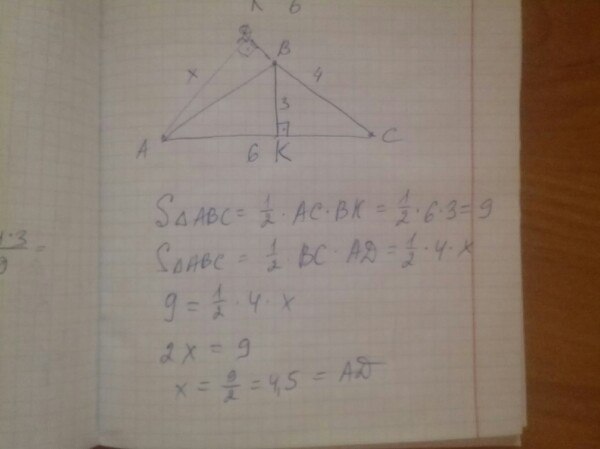 6
D
B
x
4
3
A
6 K
C
S△ABC = 1/2 · AC · BK = 1/2 · 6 · 3 = 9
S△ABC = 1/2 · BC · AD = 1/2 · 4 · x
9 = 1/2 · 4 · x
2x = 9
x = 9/2 = 4,5 = AD
· 3 =
9